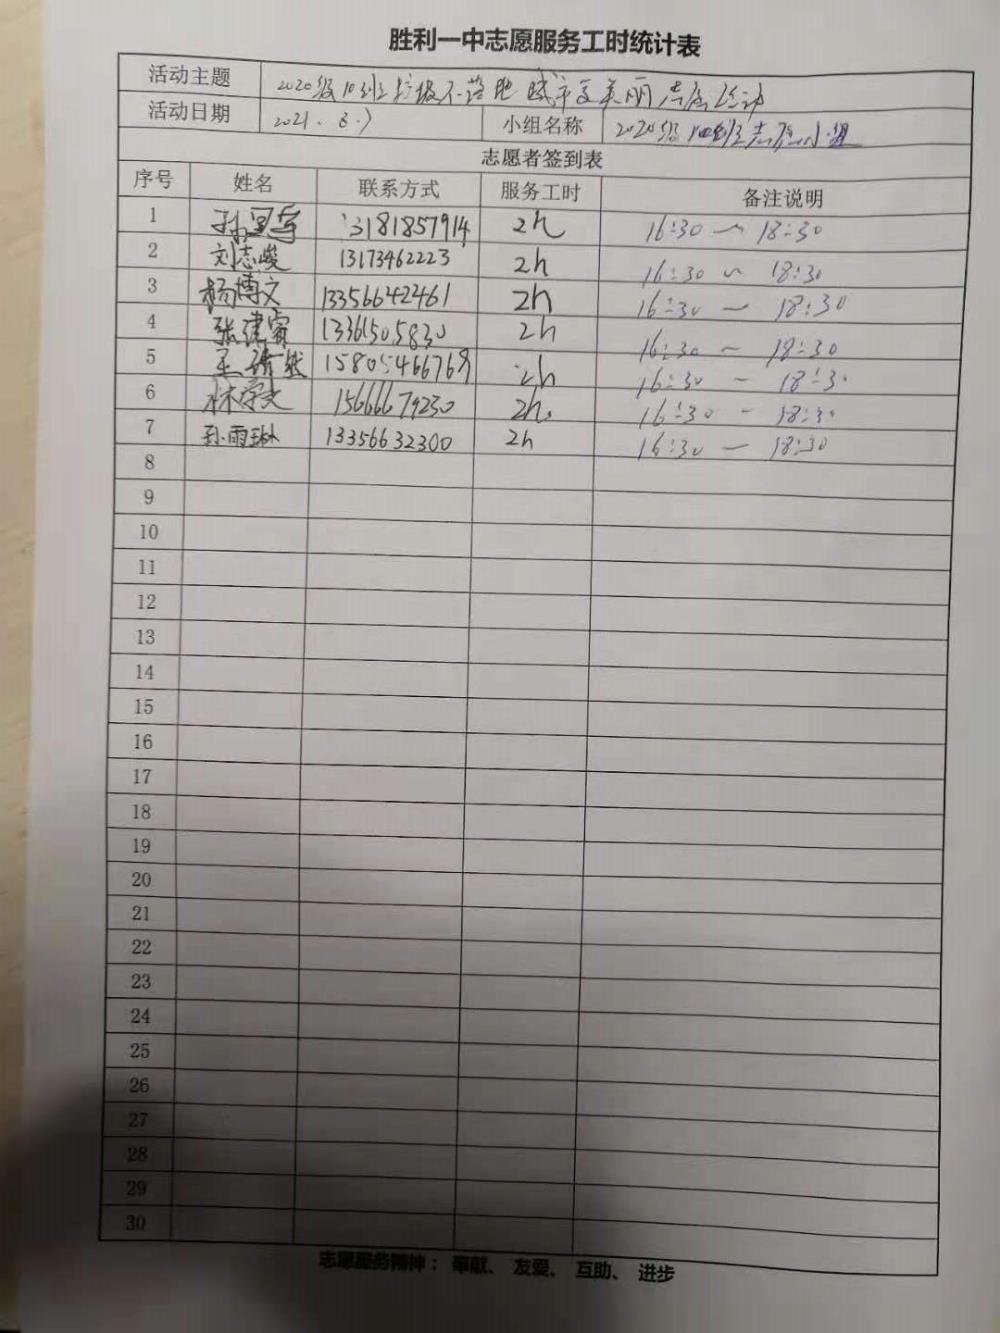 胜利一中志愿服务工时统计表
活动主题 2020级10班垃圾不落地 城市更美丽志愿活动
活动日期 2021.8.7 小组名称 2020级10班志愿小组
志愿者签到表
序号 姓名 联系方式 服务工时 备注说明
1 13181857914 2h 16:30 ~ 18:30
2 刘志峻 13173462223 2h 16:30 ~ 18:30
3 杨博文 13356642461 2h 16:30 ~ 18:30
4 张建睿 13361505830 2h 16:30 ~ 18:30
5 王 15805466769 2h 16:30 ~ 18:30
6 林 15666679230 2h. 16:30 - 18:30
7 孙雨琳 13356632300 2h 16:30 — 18:30
8
9
10
11
12
13
14
15
16
17
18
19
20
21
22
23
24
25
26
27
28
29
30
志愿服务精神：奉献、友爱、互助、进步